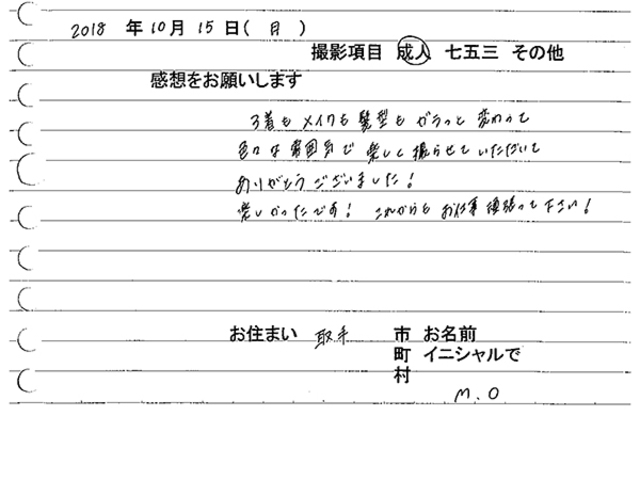 2018 年 10月 15日(月)
撮影項目 成人 七五三 その他
感想をお願いします
3着も メイクも 髪型も ガラっと 変わって
色々な 雰囲気で 楽しく 撮らせて いただいて
ありがとうございました!
楽しかったです! これからも お仕事 頑張って下さい!
お住まい 取手 市 お名前
町 イニシャルで
村
M.O